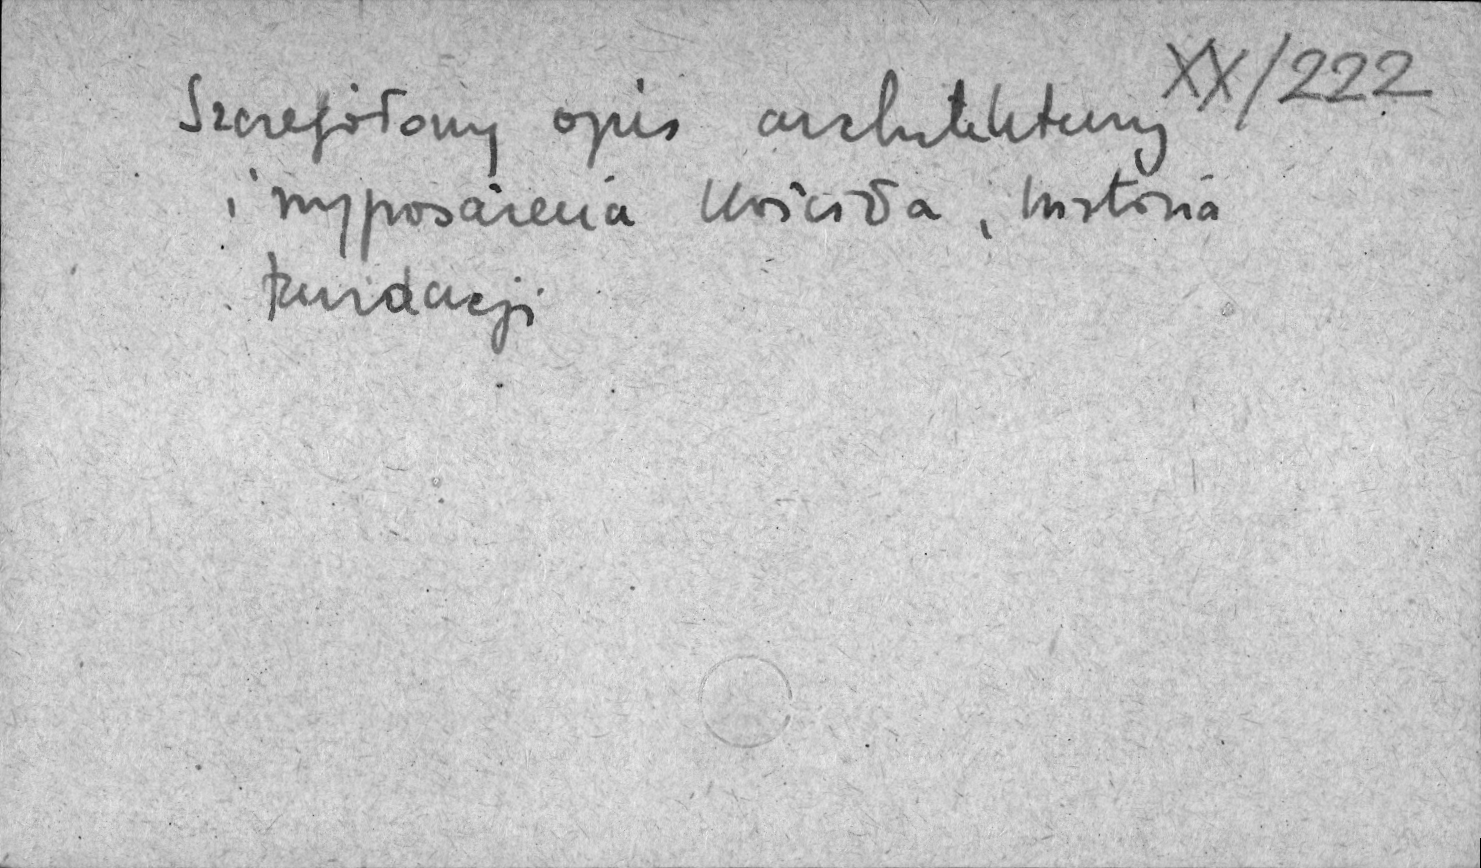 XX/222
Szczegółowy opis architektury
i wyposażenia kościoła, historia
fundacji